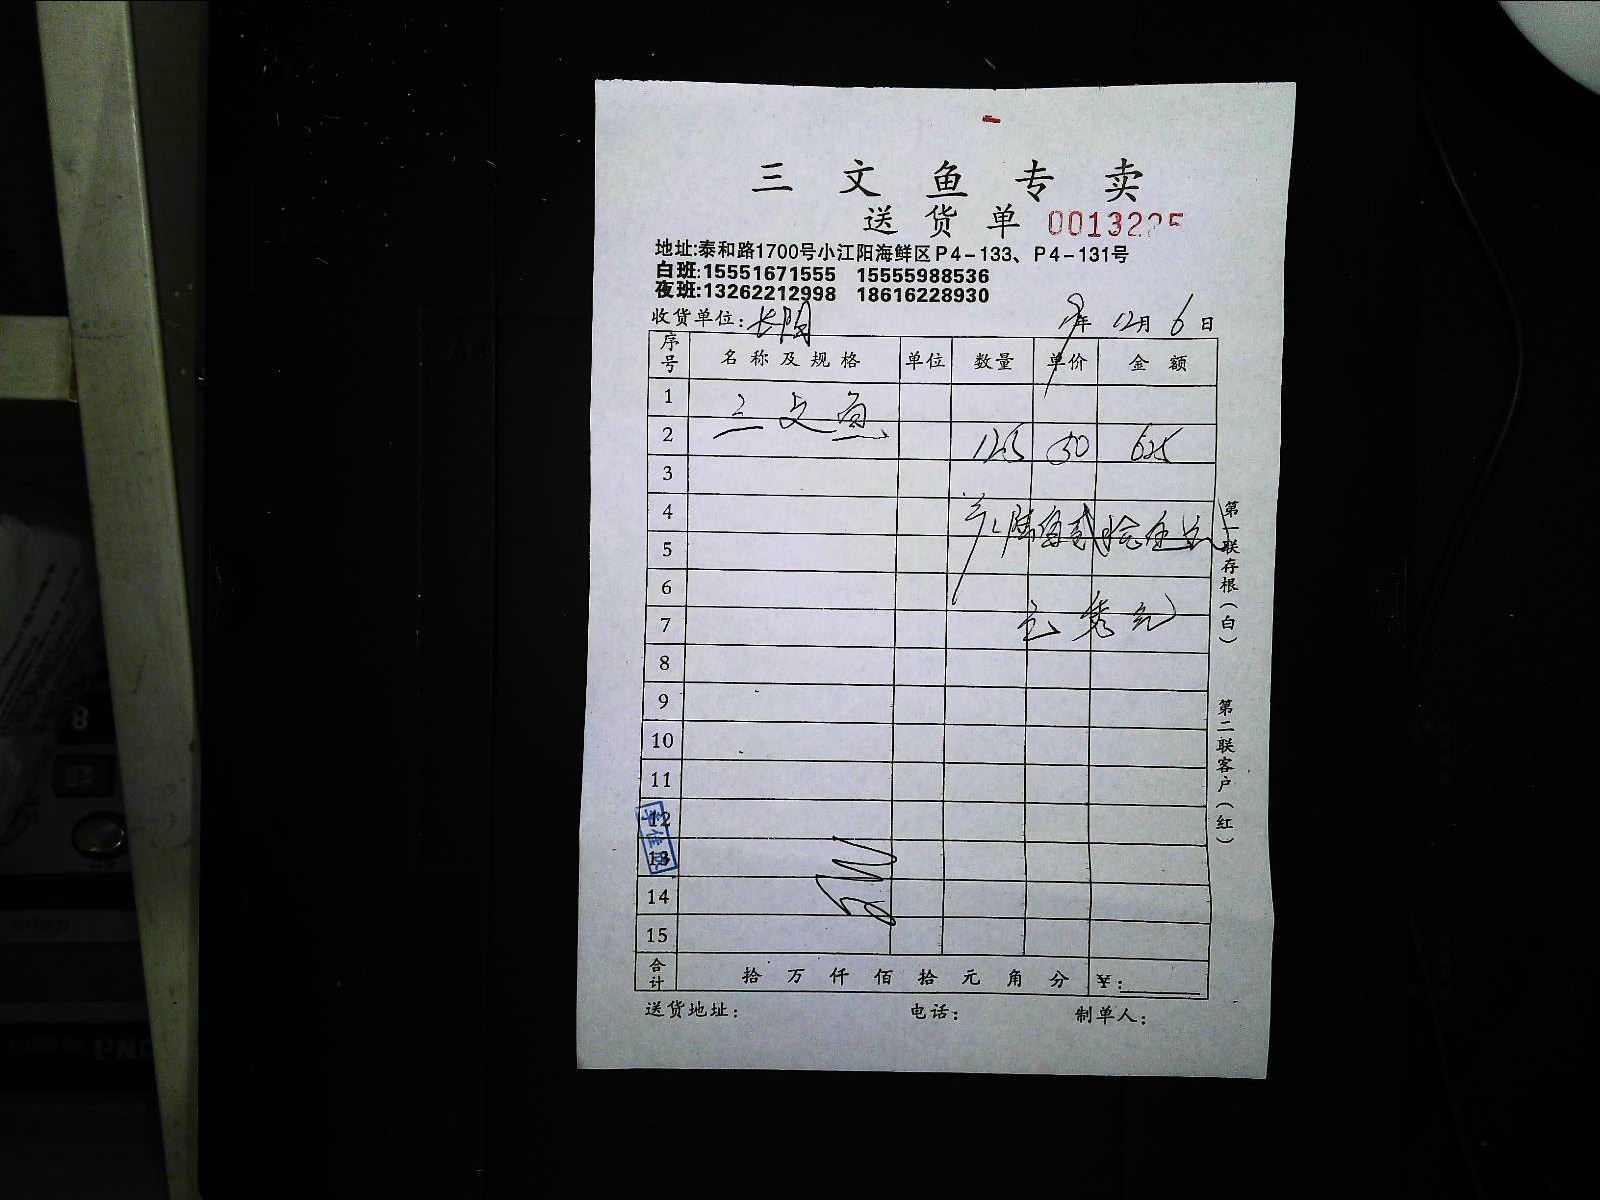 三文鱼专卖
送货单 00132
地址:泰和路1700号小江阳海鲜区P4-133、P4-131号
白班:15551671555 15555988536
夜班:13262212998 18616228930
收货单位: 年 12月 6日
序号 名称及规格 单位 数量 单价 金额
1 三文鱼
2 50 625
3
4
5
6
7
8
9
10
11
12
13
14
15
合计 拾 万 仟 佰 拾 元 角 分 ¥:
送货地址: 电话: 制单人:
第一联存根(白)
第二联客户(红)